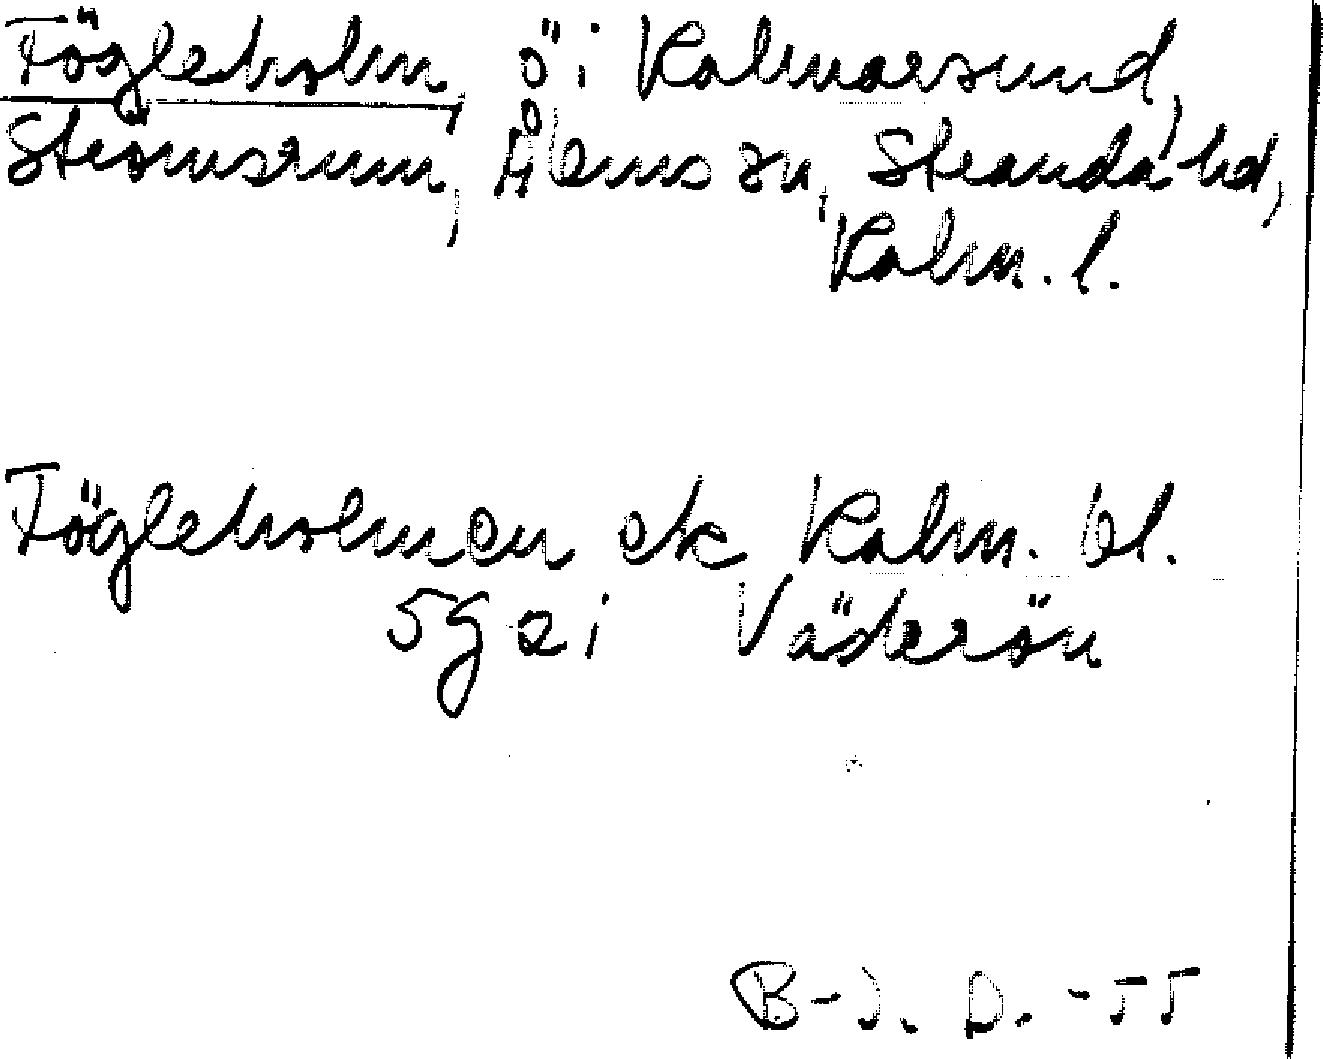 Fögleholm, ö i Kalmarsund,
Strömsrum, Ålems sn, Stranda hd,
Kalm. l.
Fögleholmen ek Kalm. bl.
5 g a i Väderön
B-J. D. -55